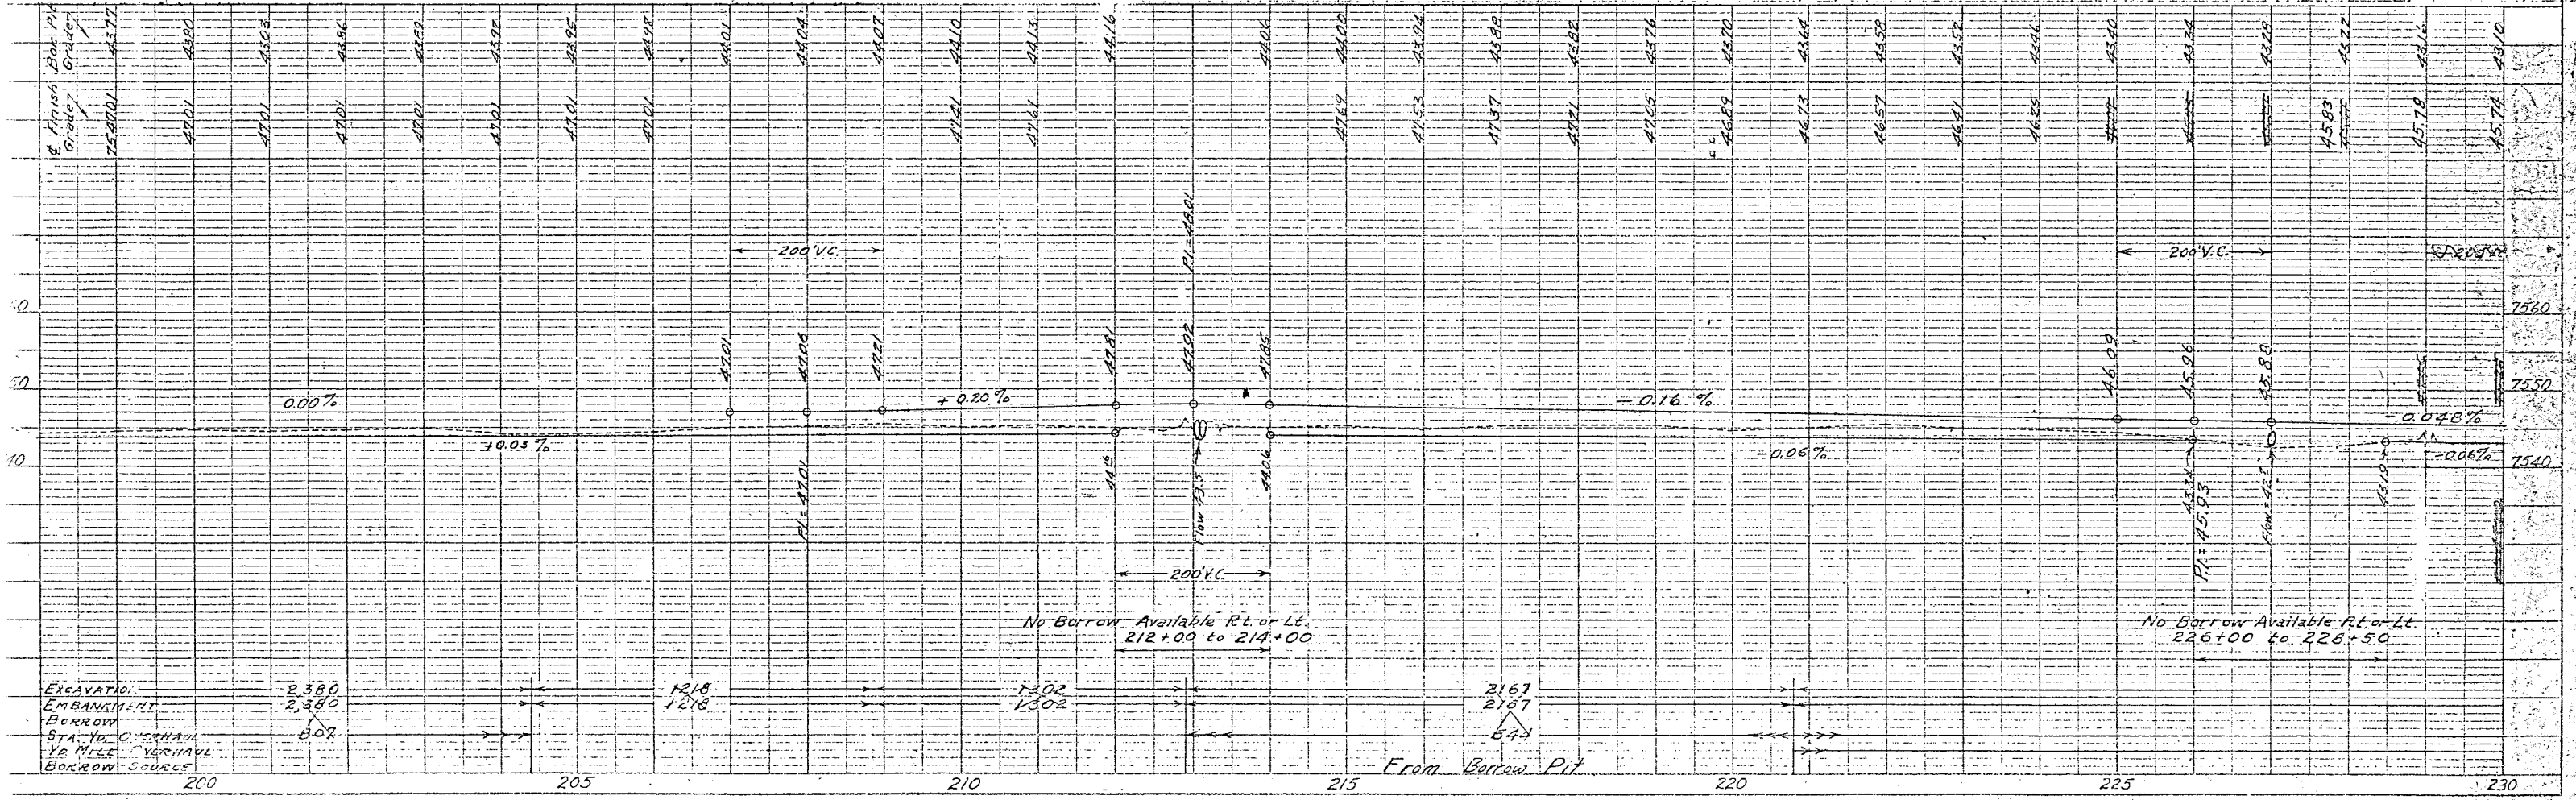 Bor. Pit Grade 43.77 43.80 43.86 43.89 43.92 43.95 43.98 44.01 44.04 44.07 44.10 44.13 44.16 44.06 44.00 43.94 43.88 43.82 43.76 43.70 43.64 43.58 43.52 43.46 43.40 43.34 43.28 43.22 43.16 43.10
℄ Finish Grade 7547.01 47.01 47.01 47.01 47.01 47.01 47.01 47.01 47.41 47.61 47.69 47.53 47.37 47.21 47.05 46.89 46.73 46.57 46.41 46.25 45.83 45.78 45.74
P.I. = 48.01
200' V.C. 200' V.C.
7560
47.01 47.06 47.21 47.81 47.92 47.85 46.09 45.96 45.88
50 7550
0.00% + 0.20% - 0.16 % - 0.048%
+0.03% -0.06% -0.06%
40 7540
P.I. = 47.01 44.16 Flow 43.5 44.06 43.34 P.I. = 45.93 Flow = 42.2 43.19
200' V.C.
No Borrow Available Rt. or Lt.
212+00 to 214+00
No Borrow Available Rt. or Lt.
226+00 to 228+50
EXCAVATION 2,380 1218 1302 2167
EMBANKMENT 2,380 1218 1302 2167
BORROW
STA. YD. OVERHAUL 807 644
YD. MILE OVERHAUL
BORROW SOURCE From Borrow Pit
200 205 210 215 220 225 230